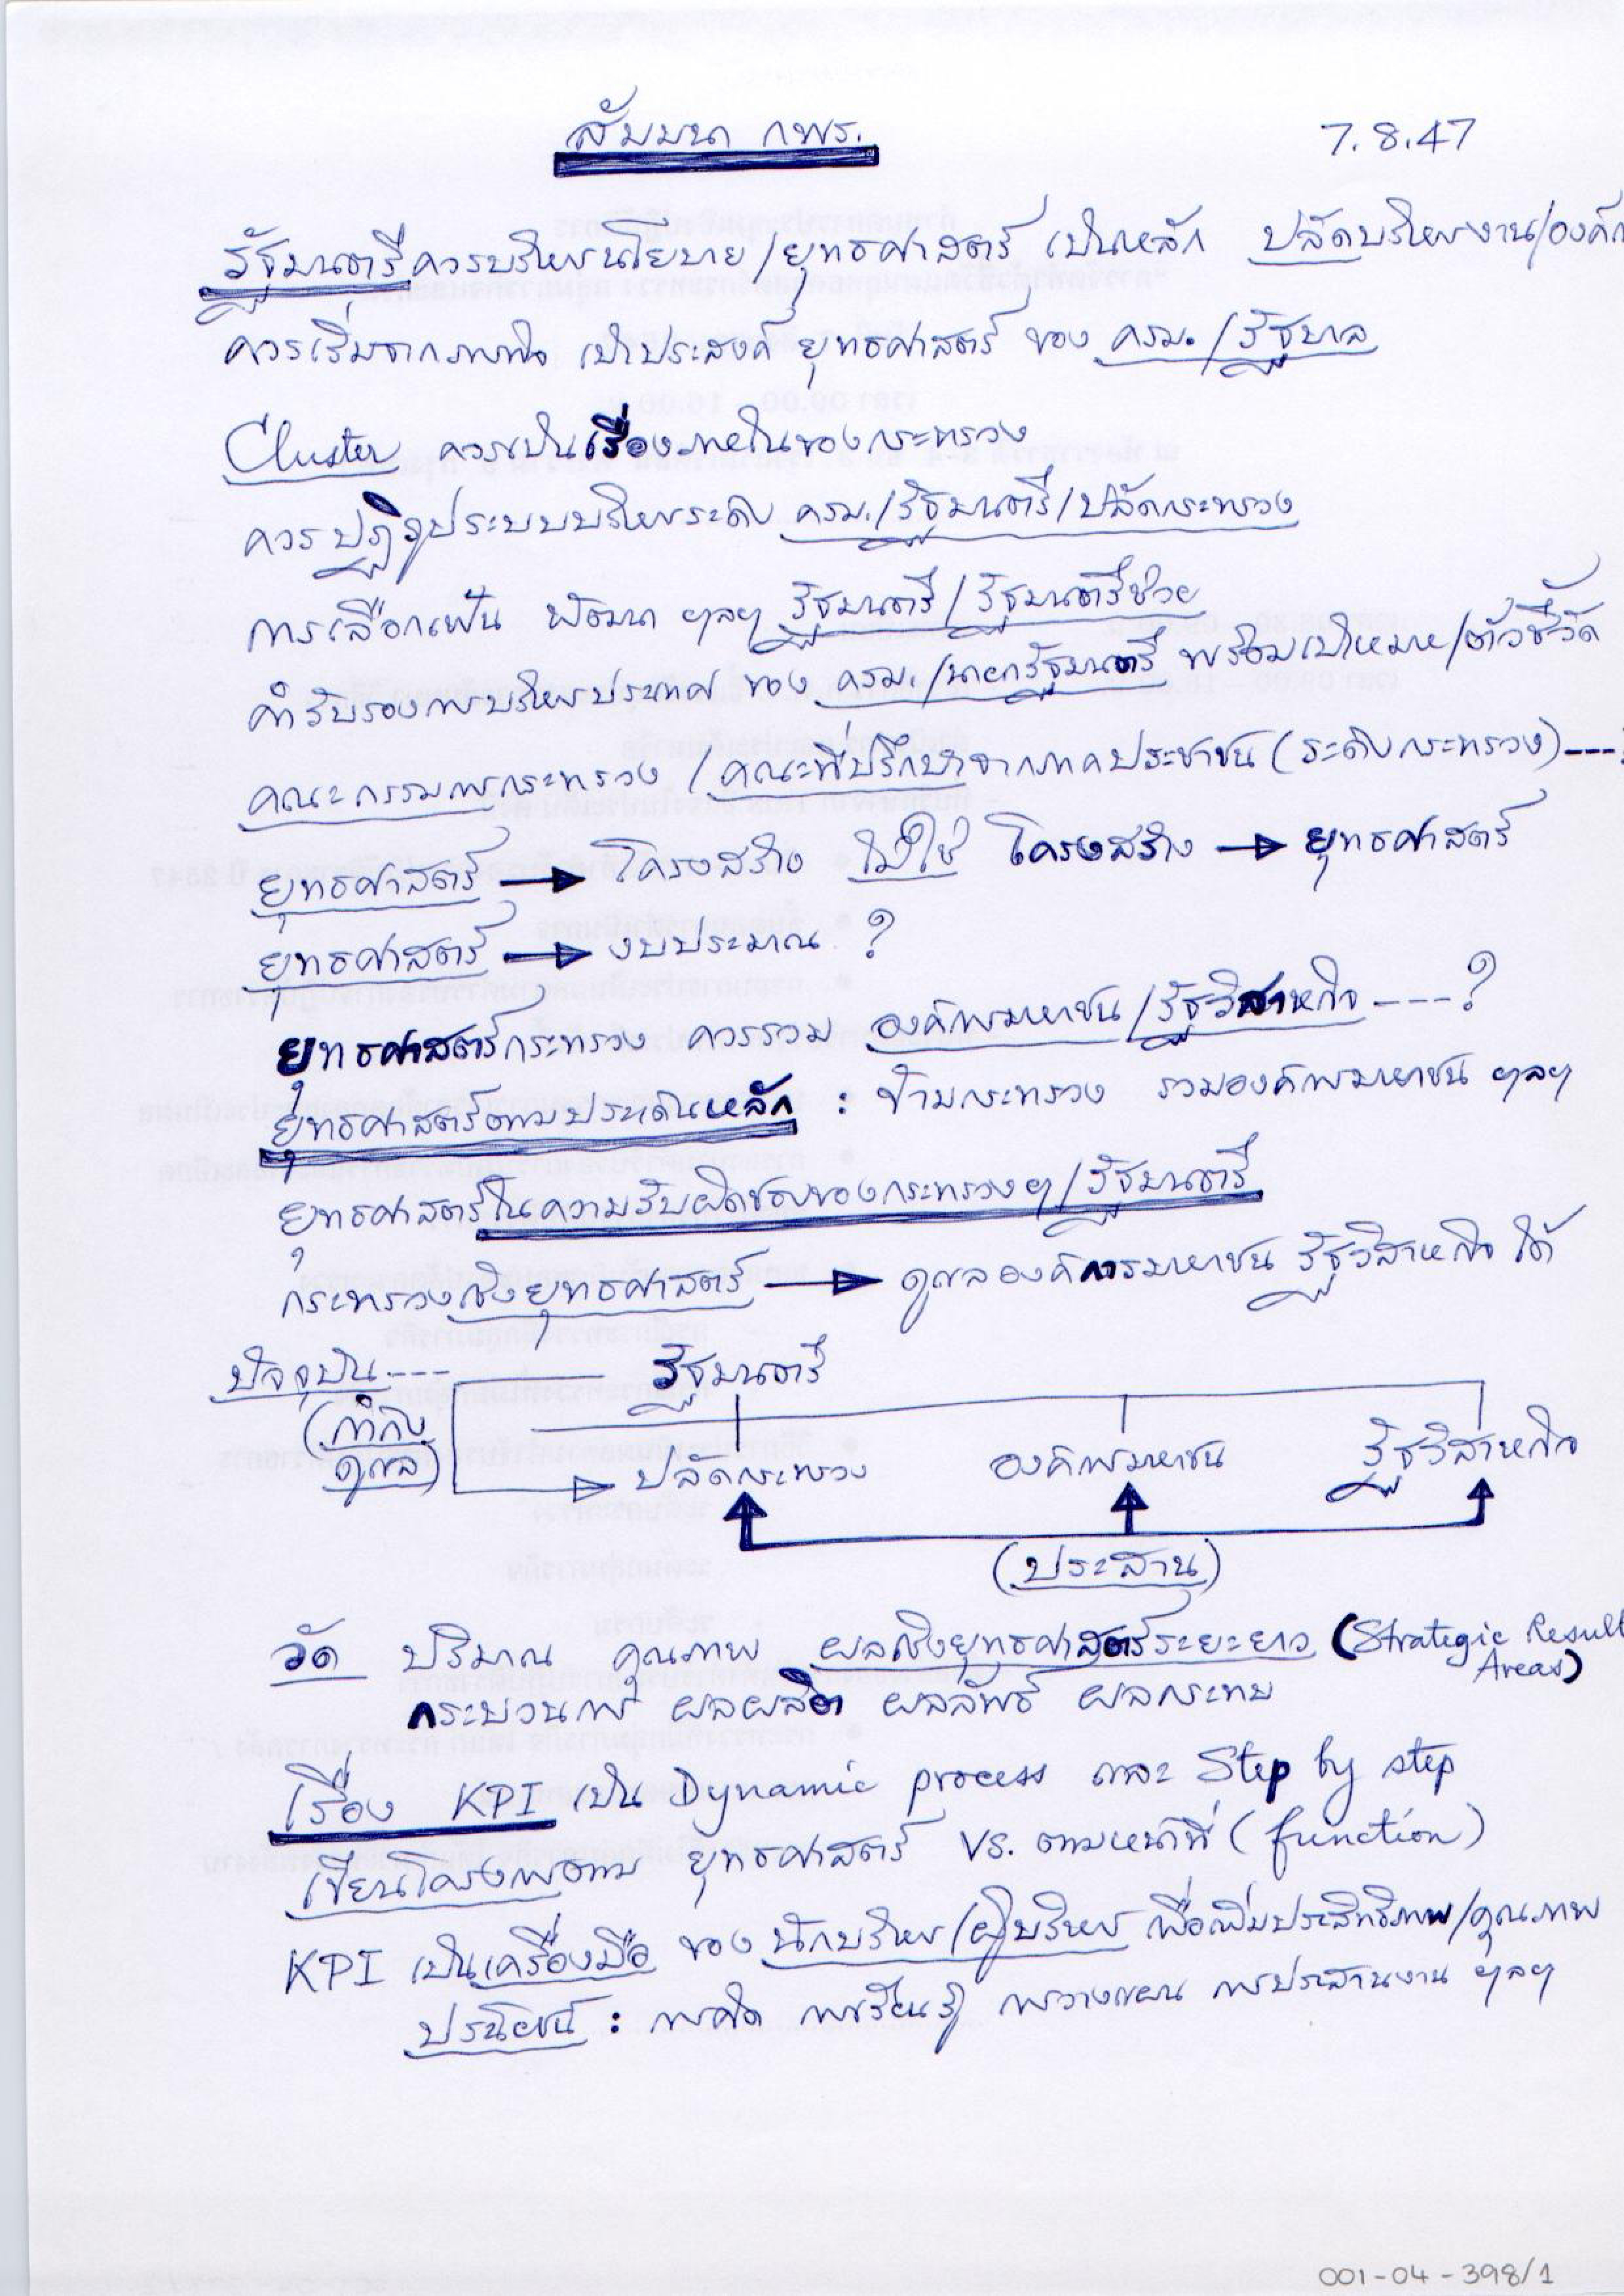 สัมมนา กพร.
7.8.47
รัฐมนตรีควรบริหารนโยบาย/ยุทธศาสตร์ เป็นหลัก ปลัดบริหารงาน/องค์กร
ควรเริ่มจากภารกิจ เป้าประสงค์ ยุทธศาสตร์ ของ ครม./รัฐบาล
Cluster ควรเป็นเรื่องภายในของกระทรวง
ควรปฏิรูประบบบริหารระดับ ครม./รัฐมนตรี/ปลัดกระทรวง
การเลือกเฟ้น พัฒนา ฯลฯ รัฐมนตรี/รัฐมนตรีช่วย
คำรับรองการบริหารประเทศ ของ ครม./นายกรัฐมนตรี พร้อมเป้าหมาย/ตัวชี้วัด
คณะกรรมการกระทรวง/คณะที่ปรึกษาจากภาคประชาชน (ระดับกระทรวง)---?
ยุทธศาสตร์ → โครงสร้าง ไม่ใช่ โครงสร้าง → ยุทธศาสตร์
ยุทธศาสตร์ → งบประมาณ ?
ยุทธศาสตร์กระทรวง ควรรวม องค์การมหาชน/รัฐวิสาหกิจ ---?
ยุทธศาสตร์ตามประเด็นหลัก : ข้ามกระทรวง รวมองค์การมหาชน ฯลฯ
ยุทธศาสตร์ในความรับผิดชอบของกระทรวงๆ/รัฐมนตรี
กระทรวงเชิงยุทธศาสตร์ → ดูแลองค์การมหาชน รัฐวิสาหกิจ ได้
ปัจจุบัน --- รัฐมนตรี
(กำกับ
ดูแล)
ปลัดกระทรวง องค์การมหาชน รัฐวิสาหกิจ
(ประสาน)
วัด ปริมาณ คุณภาพ ผลเชิงยุทธศาสตร์ระยะยาว (Strategic Result
Areas)
กระบวนการ ผลผลิต ผลลัพธ์ ผลกระทบ
เรื่อง KPI เป็น Dynamic process และ Step by step
เขียนโครงการตาม ยุทธศาสตร์ VS. ตามหน้าที่ (function)
KPI เป็นเครื่องมือ ของ นักบริหาร/ผู้บริหาร เพื่อเพิ่มประสิทธิภาพ/คุณภาพ
ประโยชน์ : การคิด การเรียนรู้ การวางแผน การประสานงาน ฯลฯ
001-04-398/1